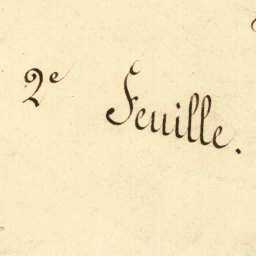 2e Feuille.